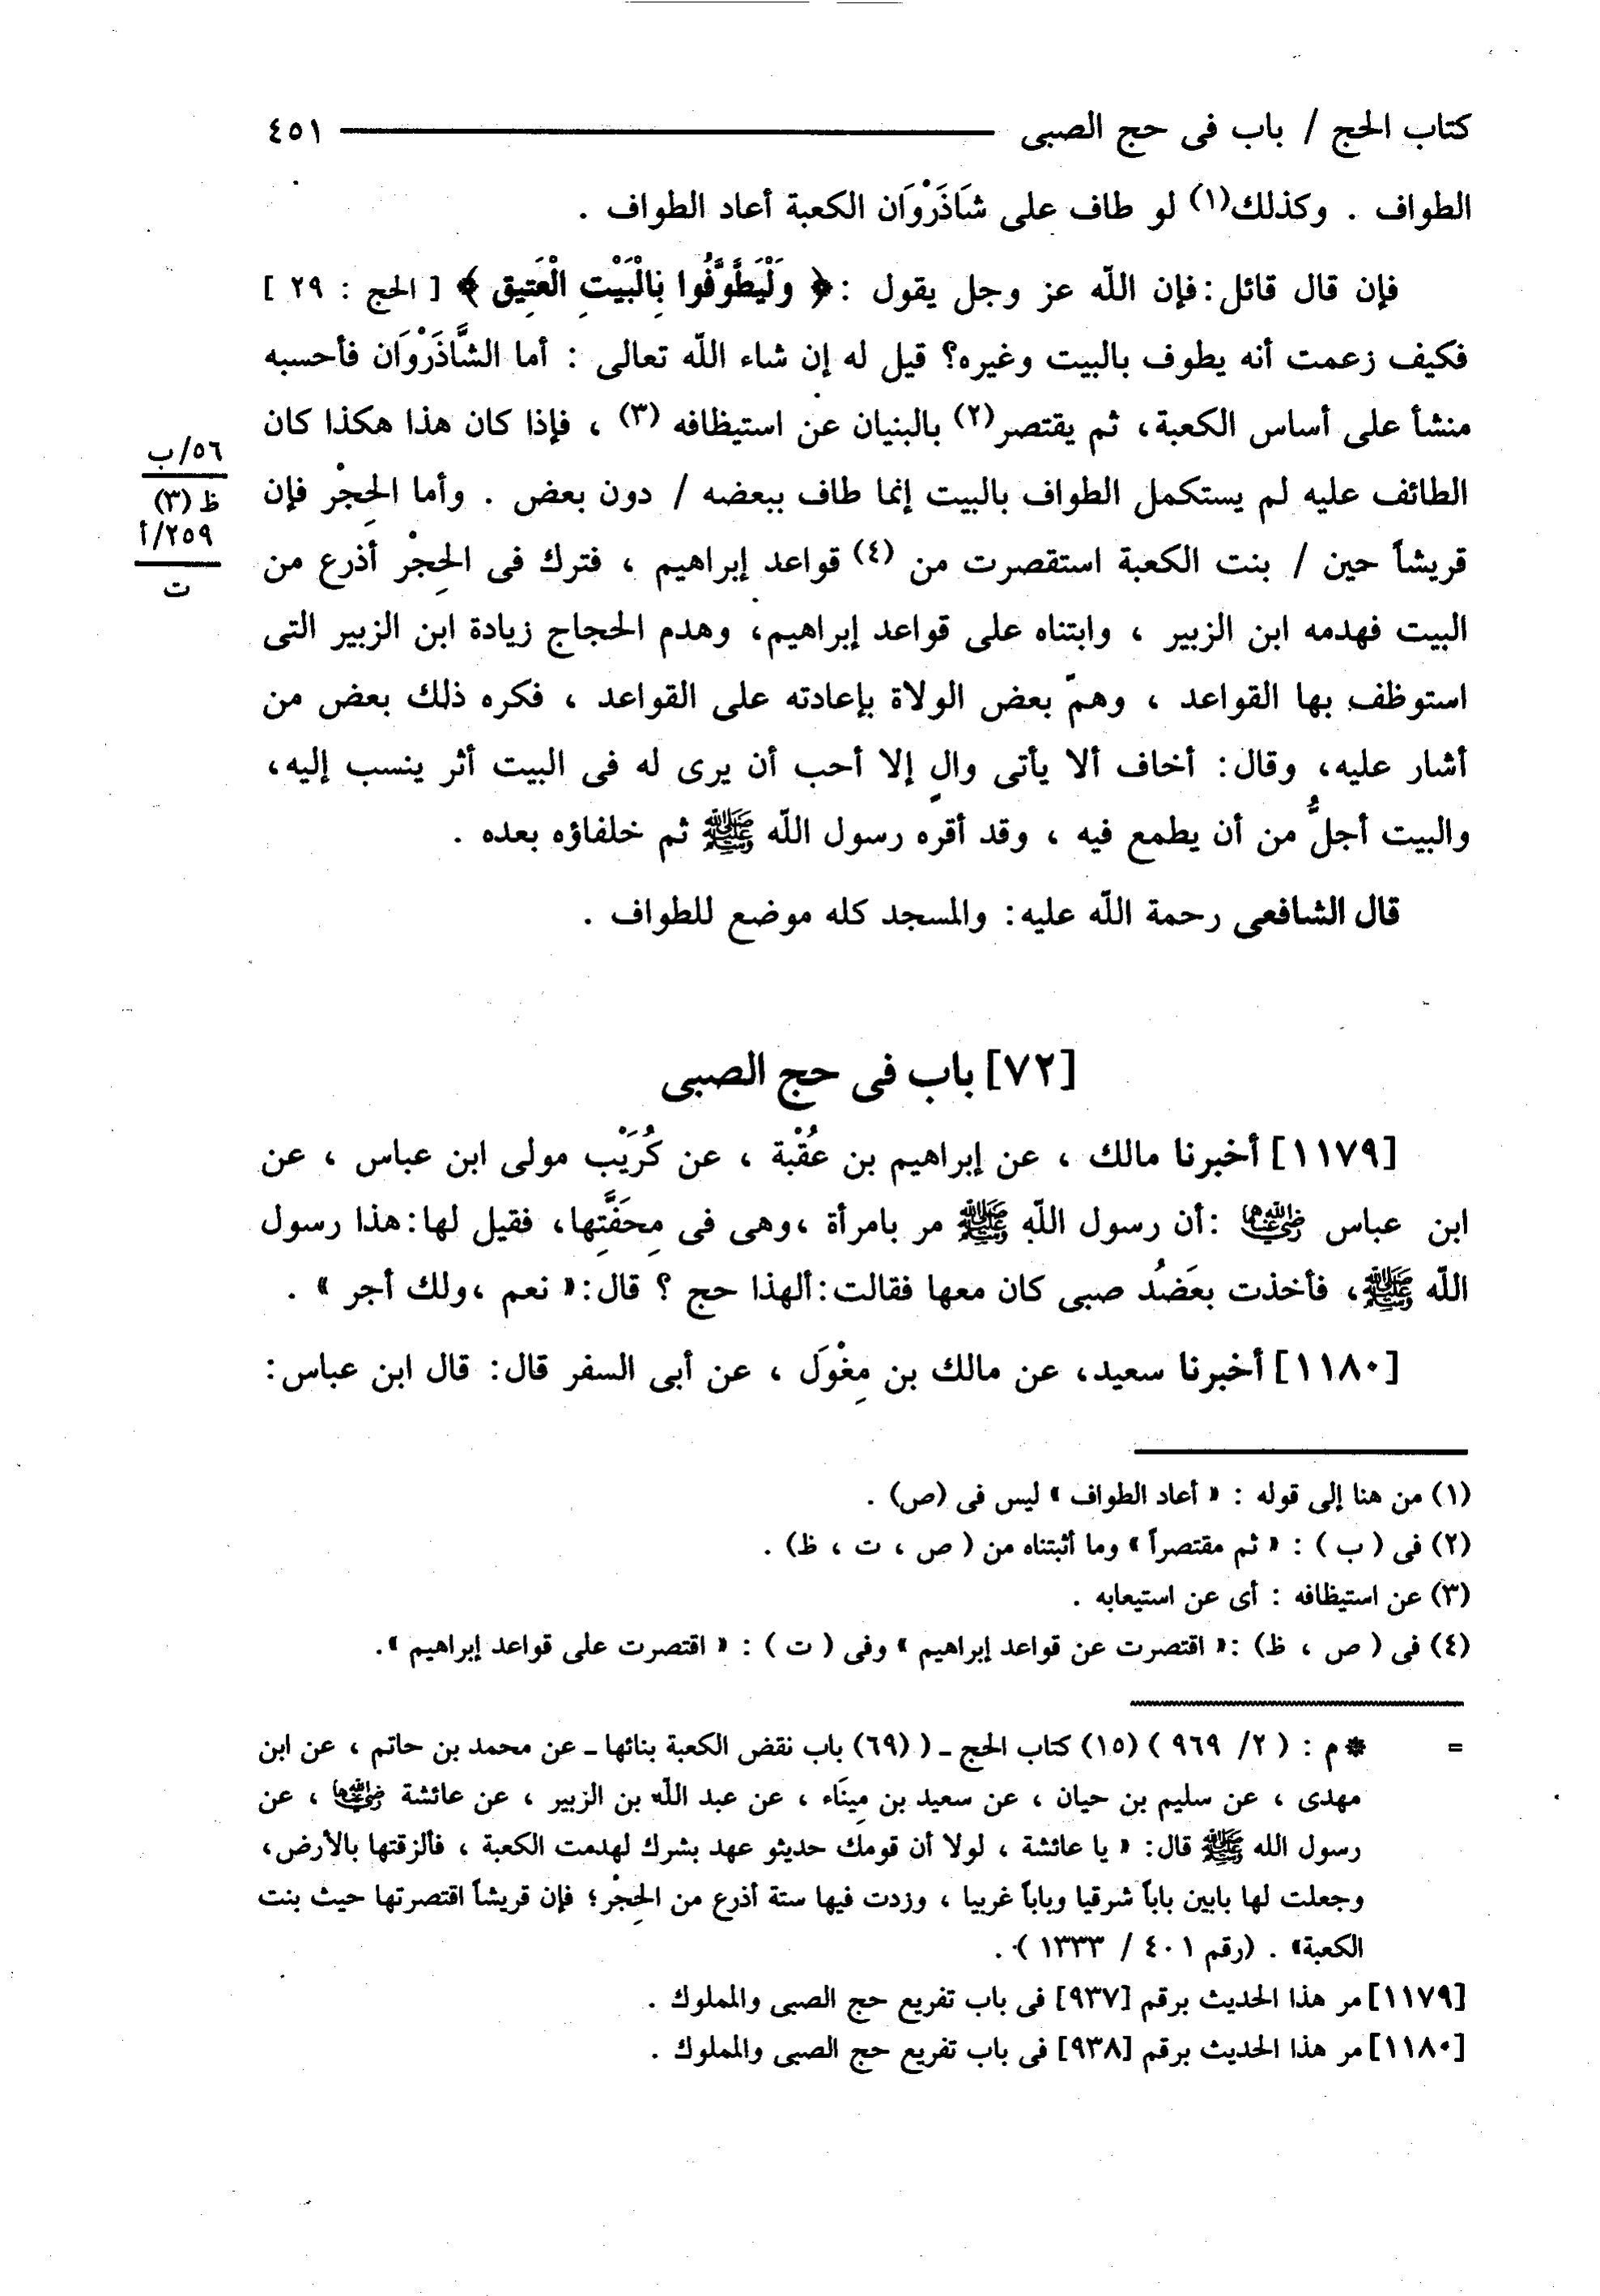 كتاب الحج / باب فى حج الصبى ٤٥١
الطواف . وكذلك(١) لو طاف على شَاذَرْوَان الكعبة أعاد الطواف .
فإن قال قائل: فإن اللّه عز وجل يقول : ﴿ وَلْيَطَّوَّفُوا بِالْبَيْتِ الْعَتِيقِ ﴾ [ الحج : ٢٩ ]
فكيف زعمت أنه يطوف بالبيت وغيره؟ قيل له إن شاء اللّه تعالى : أما الشَّاذَرْوَان فأحسبه
منشأ على أساس الكعبة، ثم يقتصر(٢) بالبنيان عن استيظافه (٣) ، فإذا كان هذا هكذا كان
٥٦/ب
الطائف عليه لم يستكمل الطواف بالبيت إنما طاف ببعضه / دون بعض . وأما الحِجْر فإن
ظ (٣)
قريشاً حين / بنت الكعبة استقصرت من (٤) قواعد إبراهيم ، فترك فى الحِجْر أذرع من
٢٥٩/أ
ت
البيت فهدمه ابن الزبير ، وابتناه على قواعد إبراهيم، وهدم الحجاج زيادة ابن الزبير التى
استوظف بها القواعد ، وهمّ بعض الولاة بإعادته على القواعد ، فكره ذلك بعض من
أشار عليه، وقال: أخاف ألا يأتى والٍ إلا أحب أن يرى له فى البيت أثر ينسب إليه،
والبيت أجلُّ من أن يطمع فيه ، وقد أقره رسول اللّه ﷺ ثم خلفاؤه بعده .
قال الشافعى رحمة اللّه عليه: والمسجد كله موضع للطواف .
[٧٢] باب فى حج الصبى
[١١٧٩] أخبرنا مالك ، عن إبراهيم بن عُقْبة ، عن كُرَيْب مولى ابن عباس ، عن
ابن عباس رضي الله عنهما : أن رسول اللّه ﷺ مر بامرأة ،وهى فى مِحَفَّتِها، فقيل لها: هذا رسول
اللّه ﷺ، فأخذت بعَضُد صبى كان معها فقالت: ألهذا حج ؟ قال: « نعم ،ولك أجر » .
[١١٨٠] أخبرنا سعيد، عن مالك بن مِغْوَل ، عن أبى السفر قال: قال ابن عباس:
(١) من هنا إلى قوله : « أعاد الطواف » ليس فى (ص) .
(٢) فى ( ب ) : « ثم مقتصراً » وما أثبتناه من ( ص ، ت ، ظ) .
(٣) عن استيظافه : أى عن استيعابه .
(٤) فى ( ص ، ظ) :« اقتصرت عن قواعد إبراهيم » وفى ( ت ) : « اقتصرت على قواعد إبراهيم ».
= * م : ( ٢/ ٩٦٩ ) (١٥) كتاب الحج ـ ( (٦٩) باب نقض الكعبة بنائها ـ عن محمد بن حاتم ، عن ابن
مهدى ، عن سليم بن حيان ، عن سعيد بن مِينَاء ، عن عبد اللّه بن الزبير ، عن عائشة رضي الله عنها ، عن
رسول الله ﷺ قال: « يا عائشة ، لولا أن قومك حديثو عهد بشرك لهدمت الكعبة ، فألزقتها بالأرض،
وجعلت لها بابين باباً شرقيا وباباً غربيا ، وزدت فيها ستة أذرع من الحِجْر؛ فإن قريشاً اقتصرتها حيث بنت
الكعبة» . (رقم ٤٠١ / ١٣٣٣ ) .
[١١٧٩] مر هذا الحديث برقم [٩٣٧] فى باب تفريع حج الصبى والمملوك .
[١١٨٠] مر هذا الحديث برقم [٩٣٨] فى باب تفريع حج الصبى والمملوك .